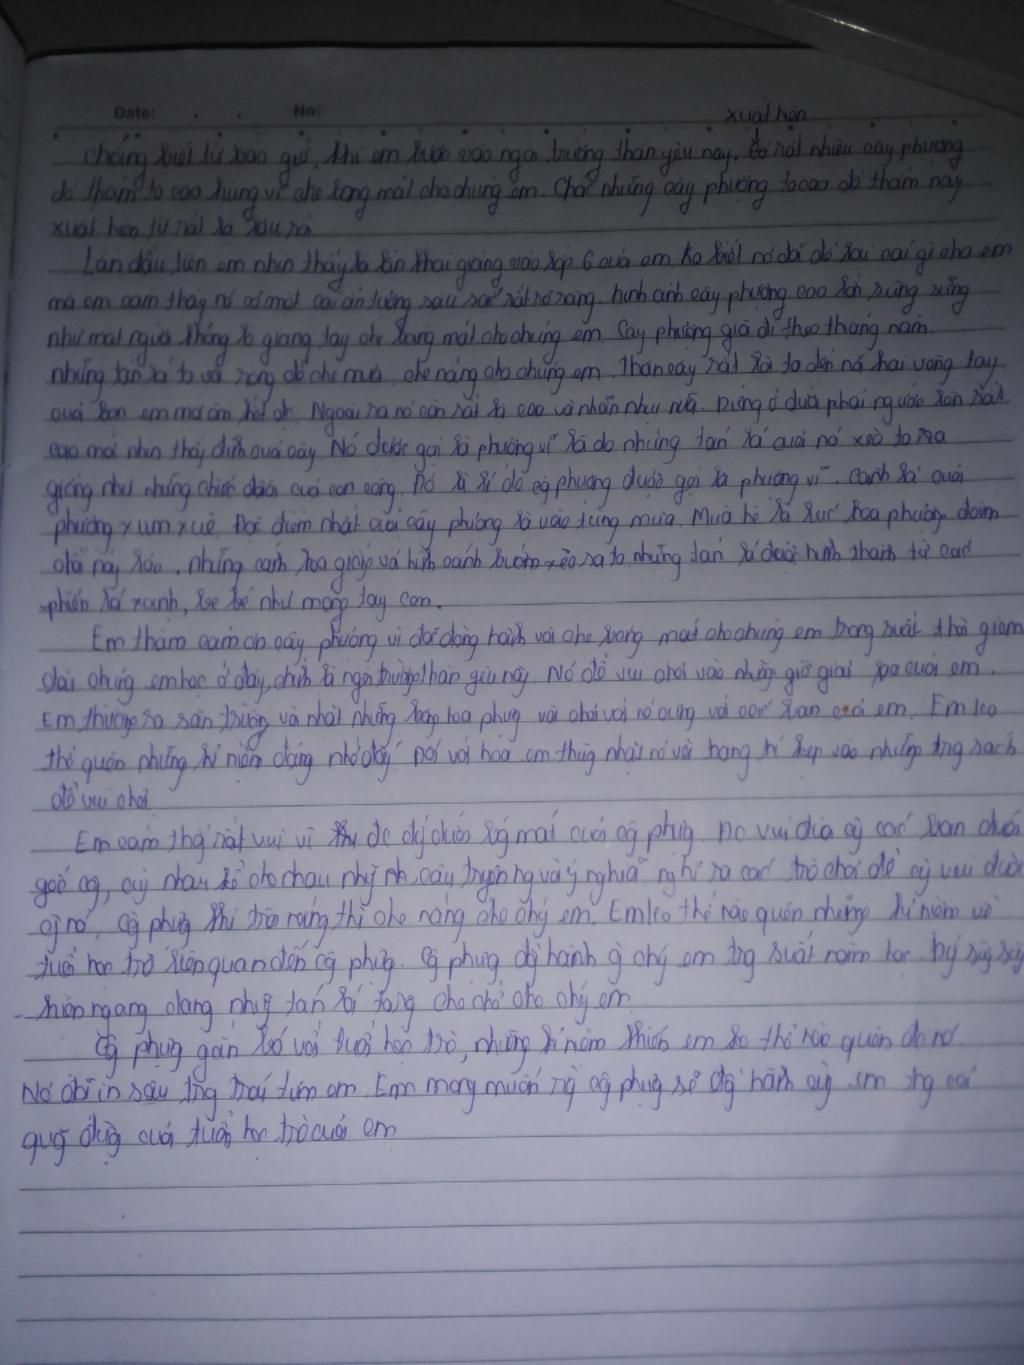 Date: . . No:
xuất hiện
chẳng biết từ bao giờ, khi em bước vào ngôi trường thân yêu này. Có rất nhiều cây phượng
đỏ thắm to cao hùng vĩ che bóng mát cho chúng em. Chắc những cây phượng to cao đỏ thắm này
xuất hiện từ rất là lâu rồi.
Lần đầu tiên em nhìn thấy là lần khai giảng vào lớp 6 của em. Ko biết nó đã để lại cái gì cho em
mà em cảm thấy nó có một cái ấn tượng sâu sắc rất rõ ràng. hình ảnh cây phượng cao lớn, sừng sững
như một người khổng lồ giang tay che bóng mát cho chúng em. Cây phượng già đi theo tháng năm.
những tán lá to và rộng để che mưa, che nắng cho chúng em. Thân cây rất là to đến nỗi hai vòng tay
của bọn em mới ôm hết đc. Ngoài ra nó còn rất là cao và nhẵn như nữa. Đứng ở dưới phải ngước lên rất
cao mới nhìn thấy đỉnh của cây. Nó được gọi là phượng vĩ là do những tán lá của nó xoè to ra
giống như những chiếc đuôi của con công. Đó là lí do cây phượng được gọi là phượng vĩ. cành lá của
phượng xum xuê. Đặc điểm nhất của cây phượng là vào từng mùa. Mùa hè là lúc hoa phượng đâm
chồi nảy lộc. những cánh hoa giống và hình cánh bướm xèo ra to những tán lá được hình thành từ các
phiến lá xanh, be bé như móng tay con.
Em thầm cảm ơn cây phượng vì đã đồng hành và che bóng mát cho chúng em trong suốt thời gian
dài chúng em học ở đây, chính là ngôi trường thân yêu này. Nó để vui chơi vào những giờ giải lao của em.
Em thường ra sân trường và nhặt những bông hoa phượng và chơi với nó cùng với các bạn của em. Em ko
thể quên những kỉ niệm đáng nhớ đấy. Đối với hoa em thường nhặt nó về trang trí kẹp vào những trang sách
để vui chơi.
Em cảm thấy rất vui vì đc đứng dưới bóng mát của cây phượng. Đc vui đùa cùng các bạn dưới
gốc cây, cùng nhau kể cho nhau những câu truyện ngụ ý nghĩa nghĩ ra các trò chơi để cùng vui dưới
nó. Cây phượng khi trời nắng thì che nắng cho chúng em. Em ko thể nào quên những kỉ niệm về
tuổi học trò liên quan đến cây phượng. Cây phượng đồng hành cùng chúng em trong suốt năm học.
hiên ngang dang những tán lá rộng che chở cho chúng em
Cây phượng gắn bó với tuổi học trò, những kỉ niệm khiến em ko thể nào quên đc nó.
Nó đã in sâu trong trái tim em. Em mong muốn rằng cây phượng sẽ đồng hành cùng em trong cái
quãng đường của tuổi học trò của em